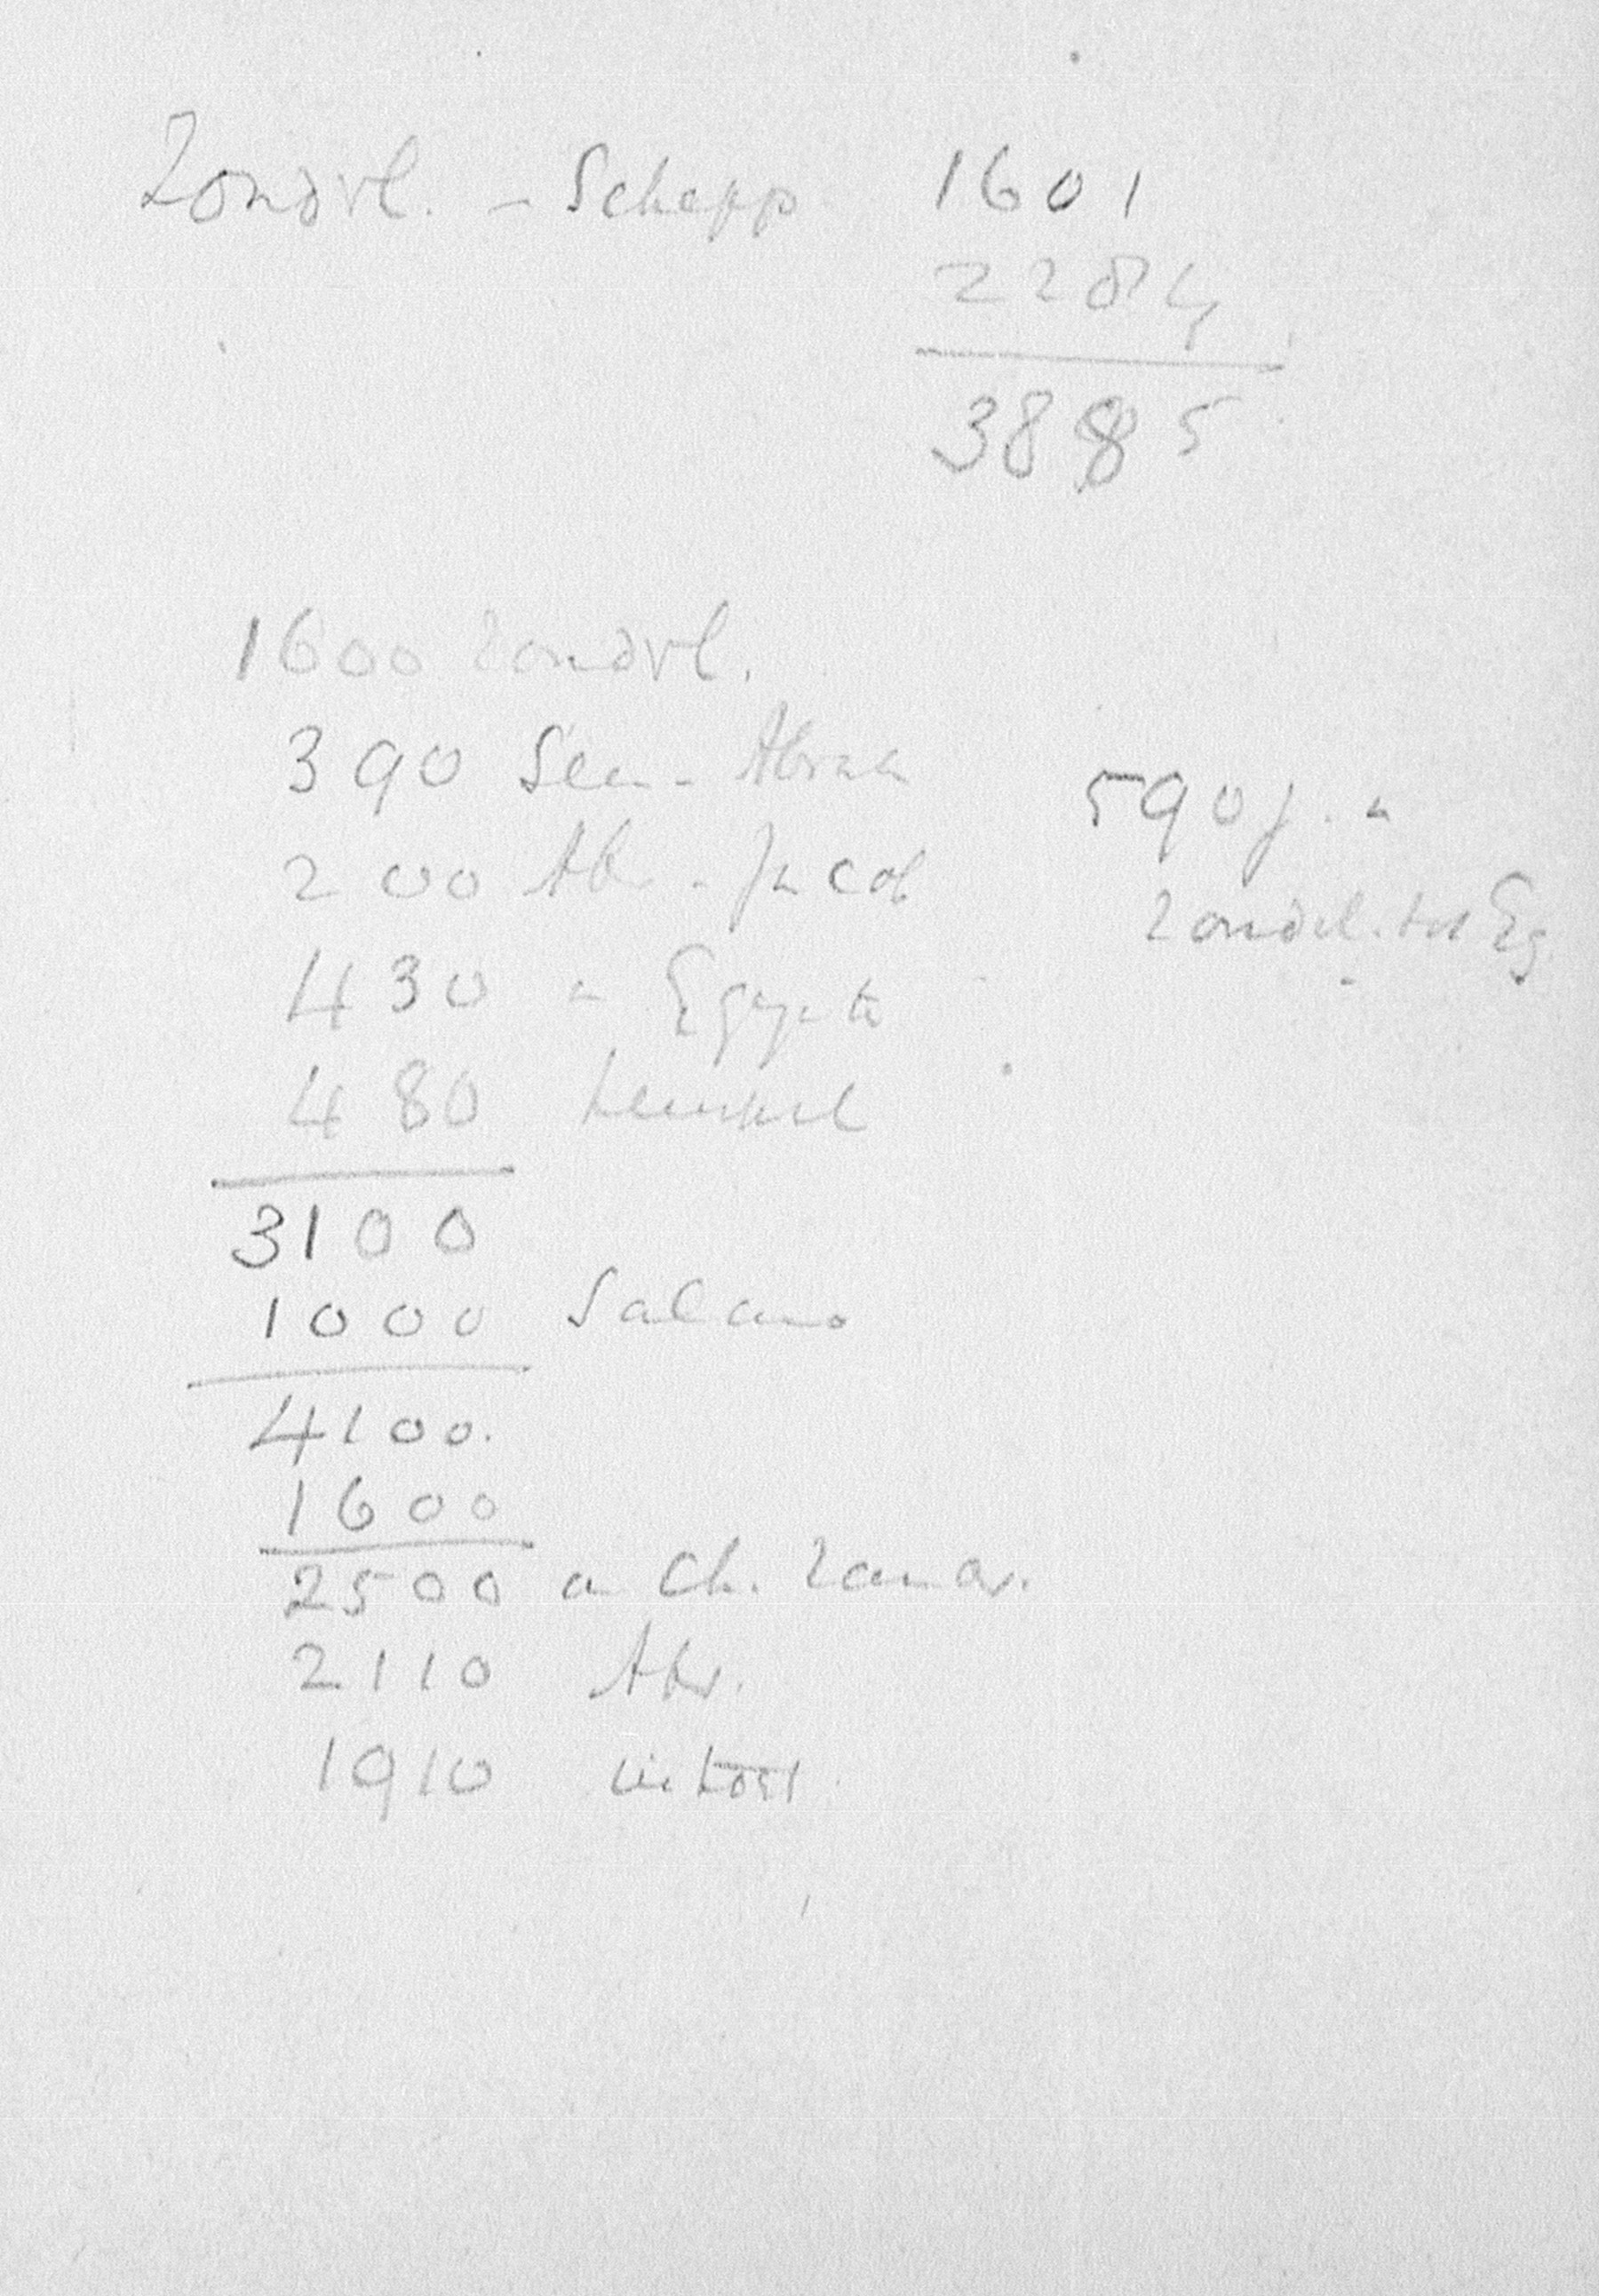 Zondvl. - Schepp 1601
2284
3885
1600 Zondvl.
390 Sem - Abrah
200 Abr - Jacob
590 j. n
zondvl. tot Eg.
430 in Egypte
480 tempel
3100
1000 Salomo
4100.
1600
2500 v Ch. zondv.
2110 Abr.
1910 uittocht